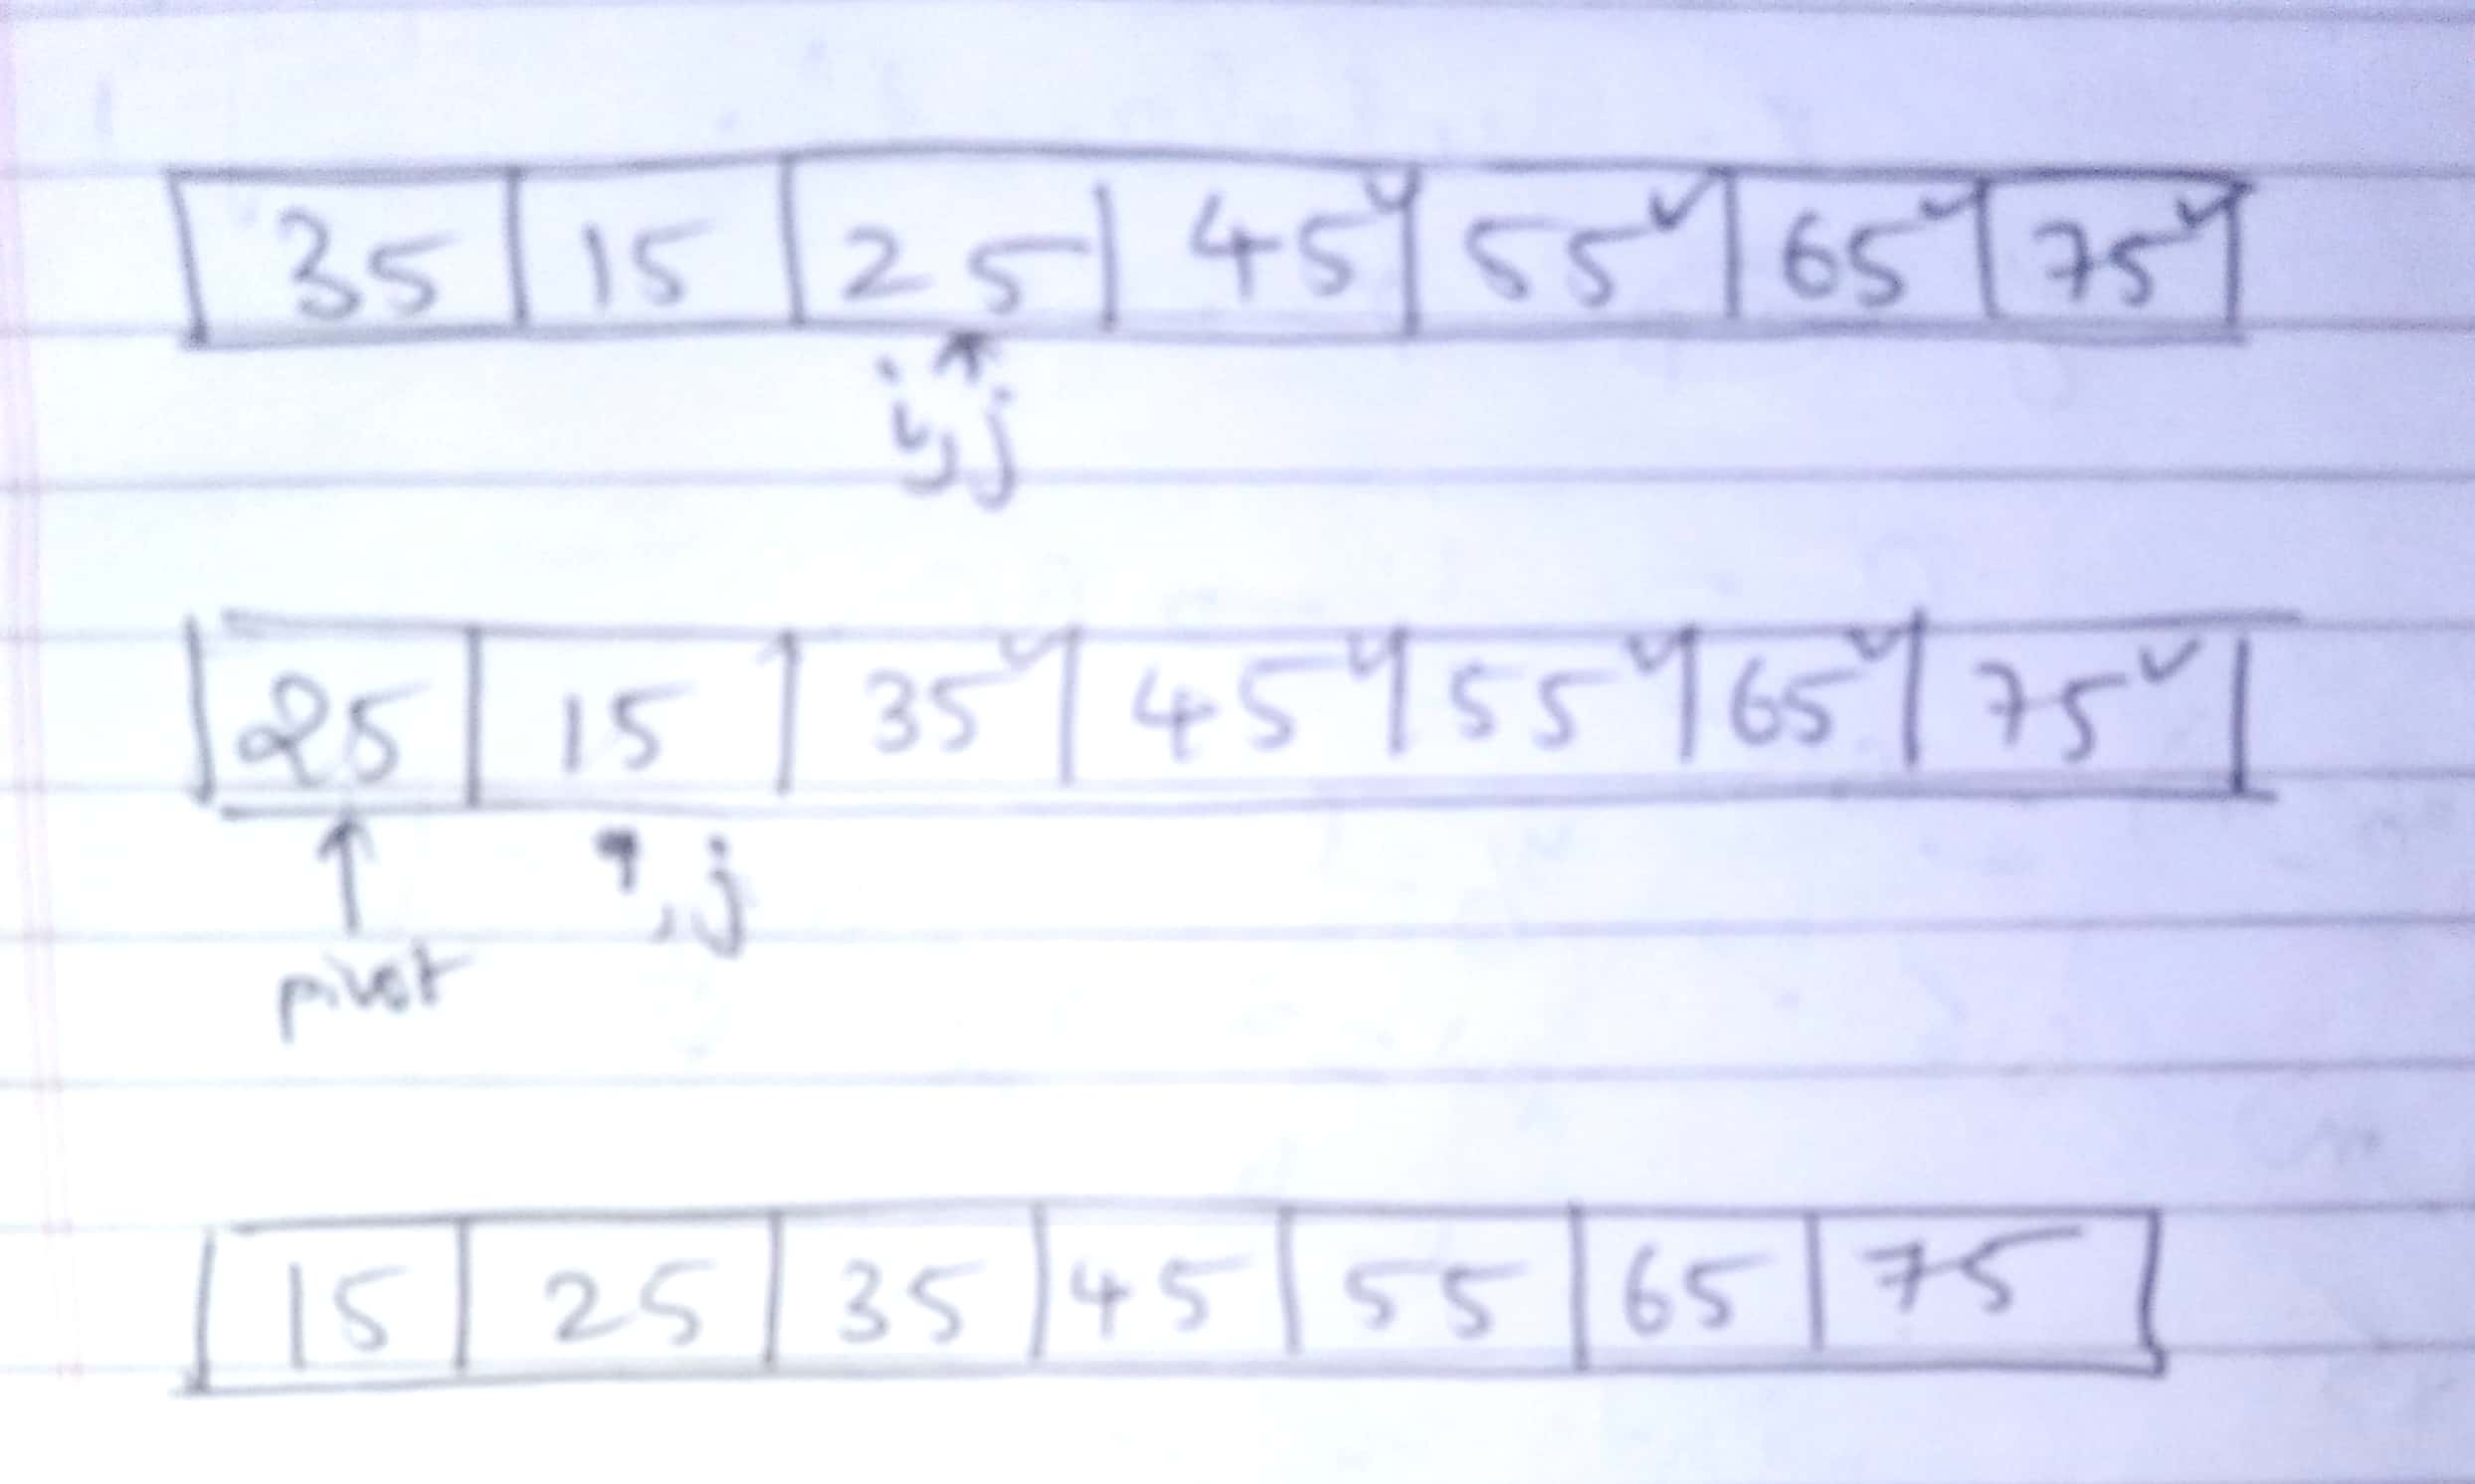 35 15 25 45✓ 55✓ 65✓ 75✓
i,j
25 15 35✓ 45✓ 55✓ 65✓ 75✓
,j
pivot
15 25 35 45 55 65 75